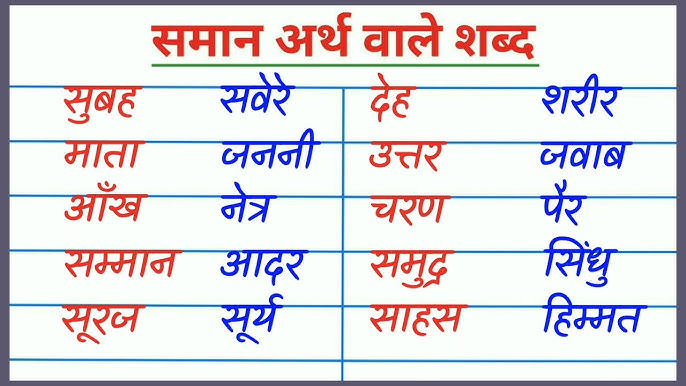 समान अर्थ वाले शब्द
सुबह सवेरे देह शरीर
माता जननी उत्तर जवाब
आँख नेत्र चरण पैर
सम्मान आदर समुद्र सिंधु
सूरज सूर्य साहस हिम्मत